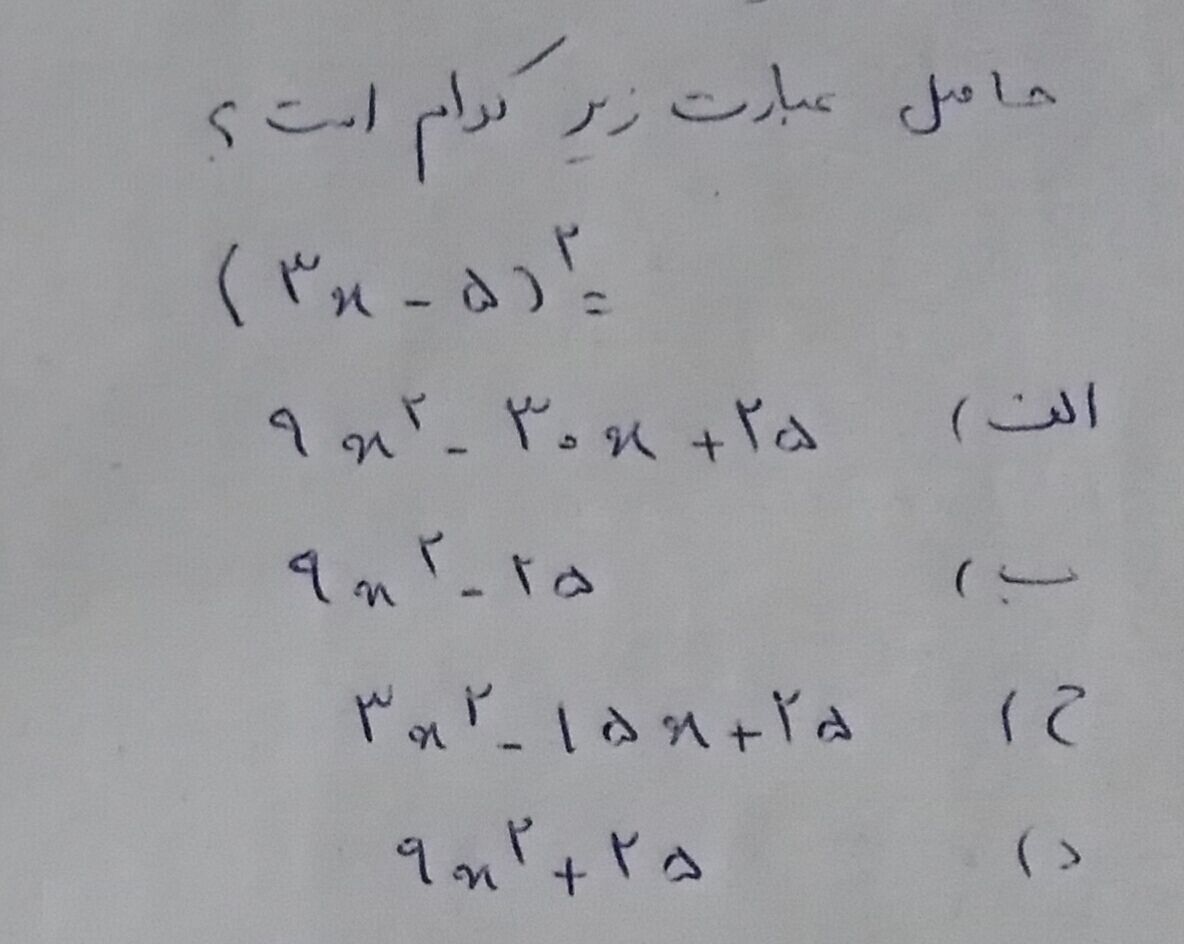 حاصل عبارت زیر کدام است؟
(۳x - ۵)^۲ =
الف) ۹x^۲ - ۳۰x + ۲۵
ب) ۹x^۲ - ۲۵
ج) ۳x^۲ - ۱۵x + ۲۵
د) ۹x^۲ + ۲۵